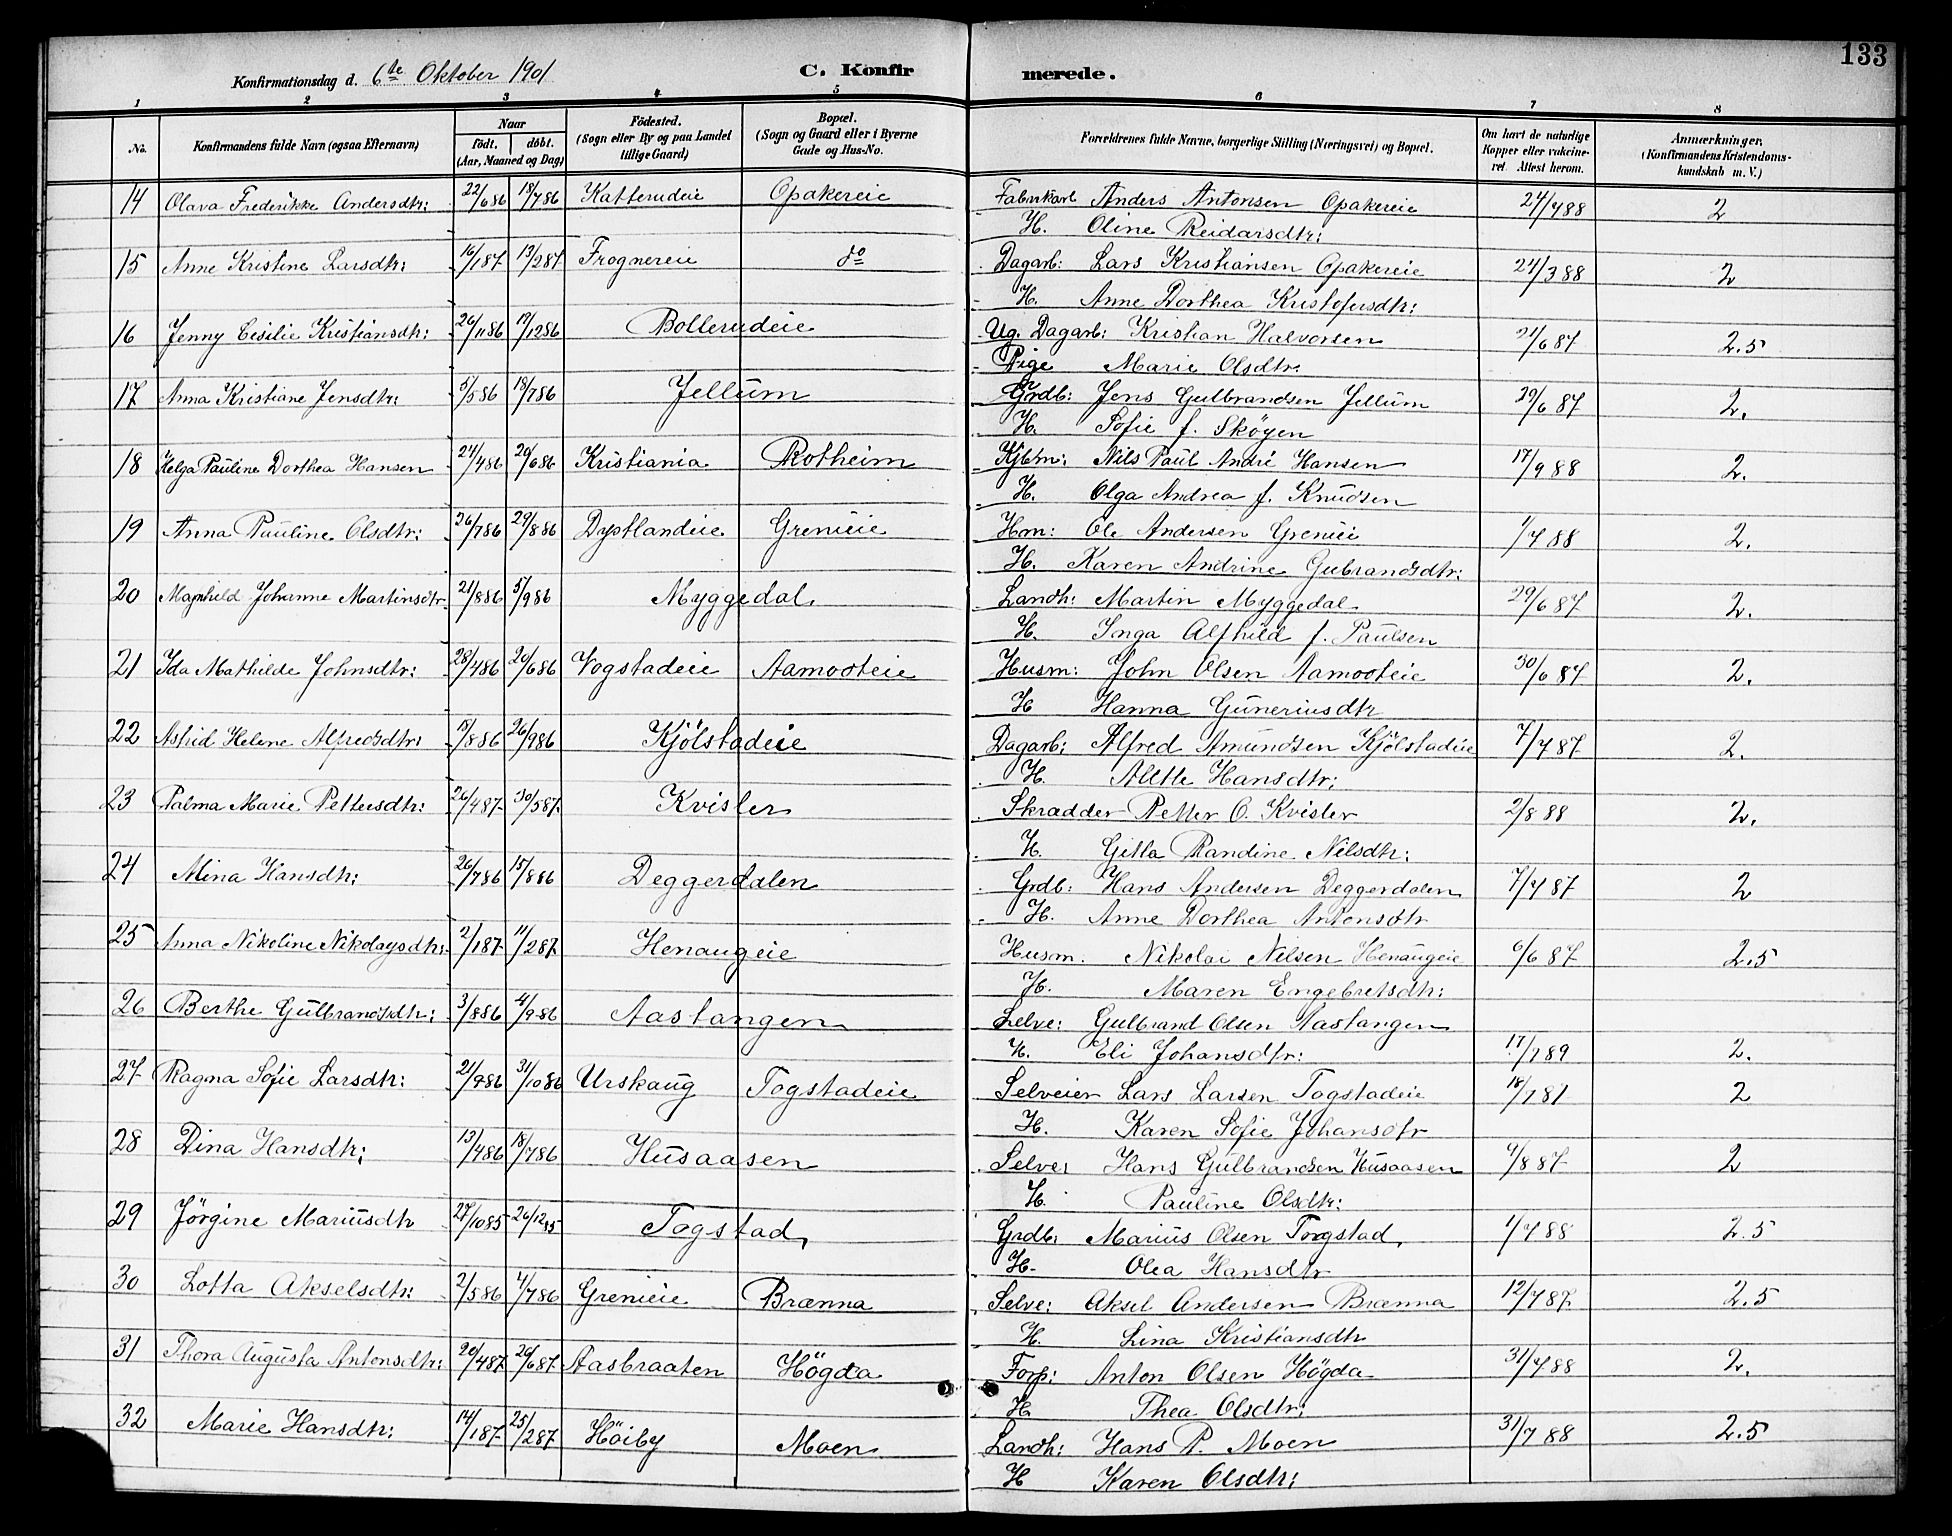 133
Konfirmationsdag d. 6te Oktober 1901 C. Konfirmerede.
1 2 3 4 5 6 7 8
No. Konfirmandens fulde Navn (ogsaa Efternavn) Naar født. døbt. (Aar, Maaned og Dag) Födested. (Sogn eller By og paa Landet tillige Gaard) Bopæl. (Sogn og Gaard eller i Byerne Gade og Hus-No. Forældrenes fulde Navne, borgerlige Stilling (Næringsvei) og Bopæl. Om havt de naturlige Kopper eller vakcineret. Attest herom. Anmærkninger. (Konfirmandens Kristendomskundskab m. V.)
14 Olava Frederikke Andersdtr: 22/6 86 18/7 86 Katterudeie Opakereie Fabrikarb Anders Antonsen Opakereie 24/7 88 2
H. Oline Reidarsdtr:
15 Anne Kristine Larsdtr: 16/1 87 13/2 87 Frognereie do Dagarb: Lars Kristiansen Opakereie 24/3 88 2
H. Anne Dorthea Kristofersdtr:
16 Jenny Cesilie Kristiansdtr: 26/11 86 17/12 86 Bollerudeie Ug. Dagarb: Kristian Halvorsen 21/6 87 2.5
Pige Marie Olsdtr.
17 Anna Kristiane Jensdtr: 5/5 86 18/7 86 Jellum Grdb: Jens Gulbrandsen Jellum 29/6 87 2.
H. Sofie f. Skøyen
18 Helga Pauline Dorthea Hansen 24/4 86 20/6 86 Kristiania Rotheim Kjbm: Nils Paul André Hansen 17/9 88 2.
H. Olga Andrea f. Knudsen
19 Anna Pauline Olsdtr: 26/7 86 29/8 86 Dystlandeie Grenieie Hm: Ole Andersen Grenieie 1/7 88 2.
H. Karen Andrine Gubrandsdtr:
20 Magnhild Johanne Martinsdtr 21/8 86 5/9 86 Myggedal Landh: Martin Myggedal 29/6 87 2.
H. Inga Alfhild f. Paulsen
21 Ida Mathilde Johnsdtr: 28/4 86 20/6 86 Vogstadeie Aamooteie Husm: John Olsen Aamooteie 30/6 87 2.
H Hanna Guneriusdtr
22 Astrid Helene Alfredsdtr: 18/8 86 26/9 86 Kjölstadeie Dagarb: Alfred Amundsen Kjölstadeie 7/7 87 2.
H. Alette Hansdtr:
23 Palma Marie Pettersdtr: 26/4 87 30/5 87 Kvisler Skrædder Petter O. Kvisler 2/8 88 2.
H. Gitla Randine Nilsdtr:
24 Mina Hansdtr: 26/7 86 15/8 86 Deggerdalen Grdb: Hans Andersen Deggerdalen 7/7 87 2
H. Anne Dorthea Antonsdtr
25 Anna Nikoline Nikolaysdtr: 2/1 87 11/2 87 Henaugeie Husm. Nikolai Nilsen Henaugeie 6/6 87 2.5
H. Maren Engebretsdtr:
26 Berthe Gulbrandsdtr: 3/8 86 4/9 86 Aastangen Selve: Gulbrand Olsen Aastangen
H. Eli Johansdtr: 17/7 89 2.
27 Ragna Sofie Larsdtr: 21/9 86 31/10 86 Urskaug Togstadeie Selveier Lars Larsen Togstadeie 18/7 87 2
H. Karen Sofie Johansdtr
28 Dina Hansdtr: 13/4 86 18/7 86 Husaasen Selve: Hans Gulbrandsen Husaasen 9/8 87 2
H. Pauline Olsdtr:
29 Jörgine Mariusdtr 27/10 85 26/12 85 Togstad Grdb: Marius Olsen Togstad, 1/7 88 2.5
H. Olea Hansdtr
30 Lotta Akselsdtr: 2/5 86 4/7 86 Grenieie Brænna Selve: Aksel Andersen Brænna 12/7 87 2.5
H. Lina Kristiansdtr
31 Thora Augusta Antonsdtr: 20/4 87 26/6 87 Aasbraaten Högda Forp: Anton Olsen Högda 31/7 88 2.
H. Thea Olsdtr:
32 Marie Hansdtr: 14/1 87 25/2 87 Höiby Moen Landh: Hans P. Moen 31/7 88 2.5
H Karen Olsdtr: